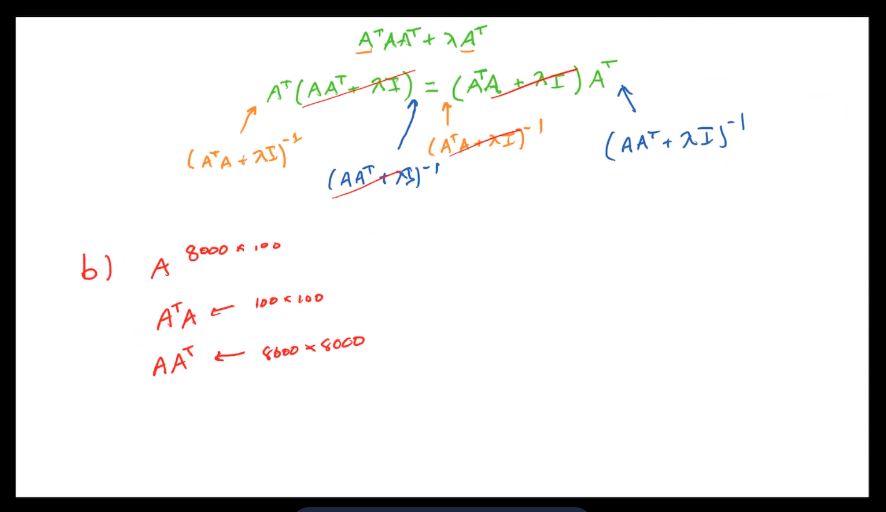 AᵀAAᵀ + λAᵀ
Aᵀ(AAᵀ + λI) = (AᵀA + λI)Aᵀ
(AᵀA + λI)⁻¹ (AAᵀ + λI)⁻¹ (AᵀA + λI)⁻¹ (AAᵀ + λI)⁻¹
b) A 8000 × 100
AᵀA ← 100 × 100
AAᵀ ← 8000 × 8000